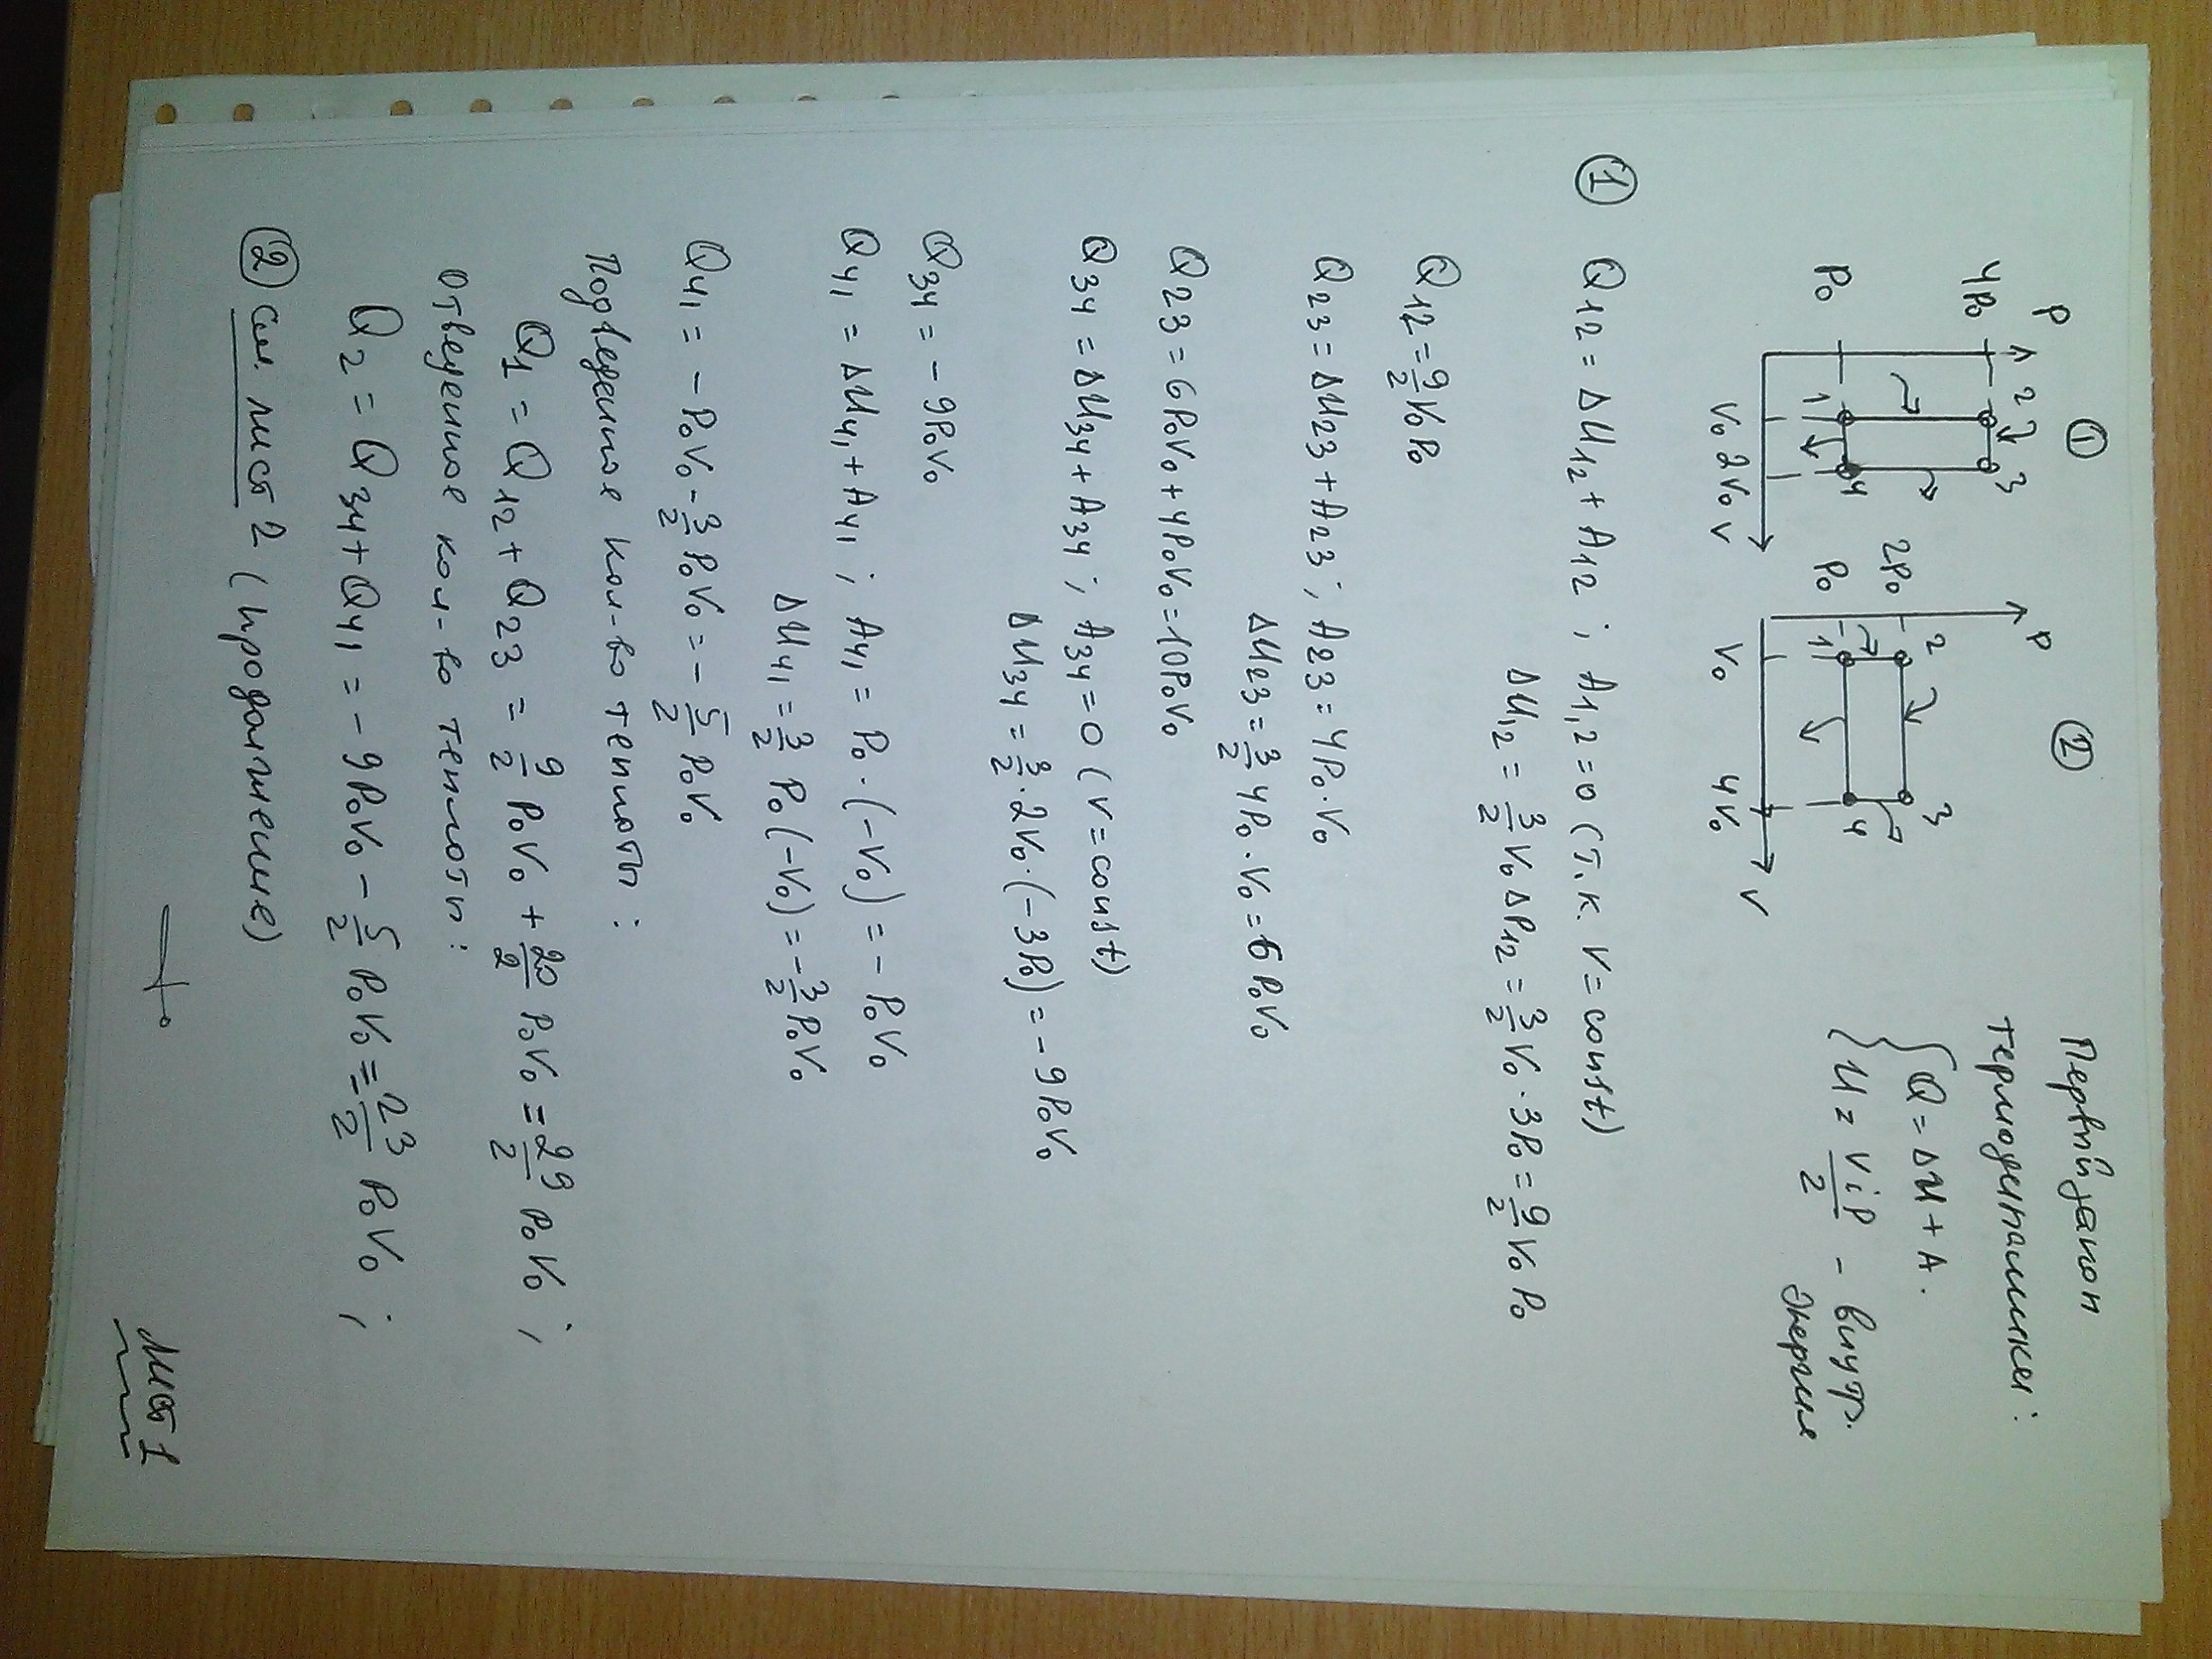 ① ② Первый закон
термодинамики:
P 4P₀ P₀ 1 2 3 4 V₀ 2V₀ V
P 2P₀ P₀ 1 2 3 4 V₀ 4V₀ V
{ Q = ΔU + A.
U = ViP/2 - внутр.
энергия
① Q12 = ΔU12 + A12 ; A1,2 = 0 (т.к. V = const)
ΔU12 = 3/2 V₀ ΔP12 = 3/2 V₀ · 3P₀ = 9/2 V₀ P₀
Q12 = 9/2 V₀ P₀
Q23 = ΔU23 + A23 ; A23 = 4P₀ · V₀
ΔU23 = 3/2 4P₀ · V₀ = 6 P₀V₀
Q23 = 6P₀V₀ + 4P₀V₀ = 10P₀V₀
Q34 = ΔU34 + A34 ; A34 = 0 (V = const)
ΔU34 = 3/2 · 2V₀ · (-3P₀) = - 9P₀V₀
Q34 = - 9P₀V₀
Q41 = ΔU41 + A41 ; A41 = P₀ · (-V₀) = - P₀V₀
ΔU41 = 3/2 P₀ (-V₀) = - 3/2 P₀V₀
Q41 = - P₀V₀ - 3/2 P₀V₀ = - 5/2 P₀V₀
Подведенное кол-во теплоты :
Q1 = Q12 + Q23 = 9/2 P₀V₀ + 20/2 P₀V₀ = 29/2 P₀V₀ ;
Отведенное кол-во теплоты:
Q2 = Q34 + Q41 = - 9P₀V₀ - 5/2 P₀V₀ = - 23/2 P₀V₀ ;
② см. лист 2 (продолжение)
Лист 1